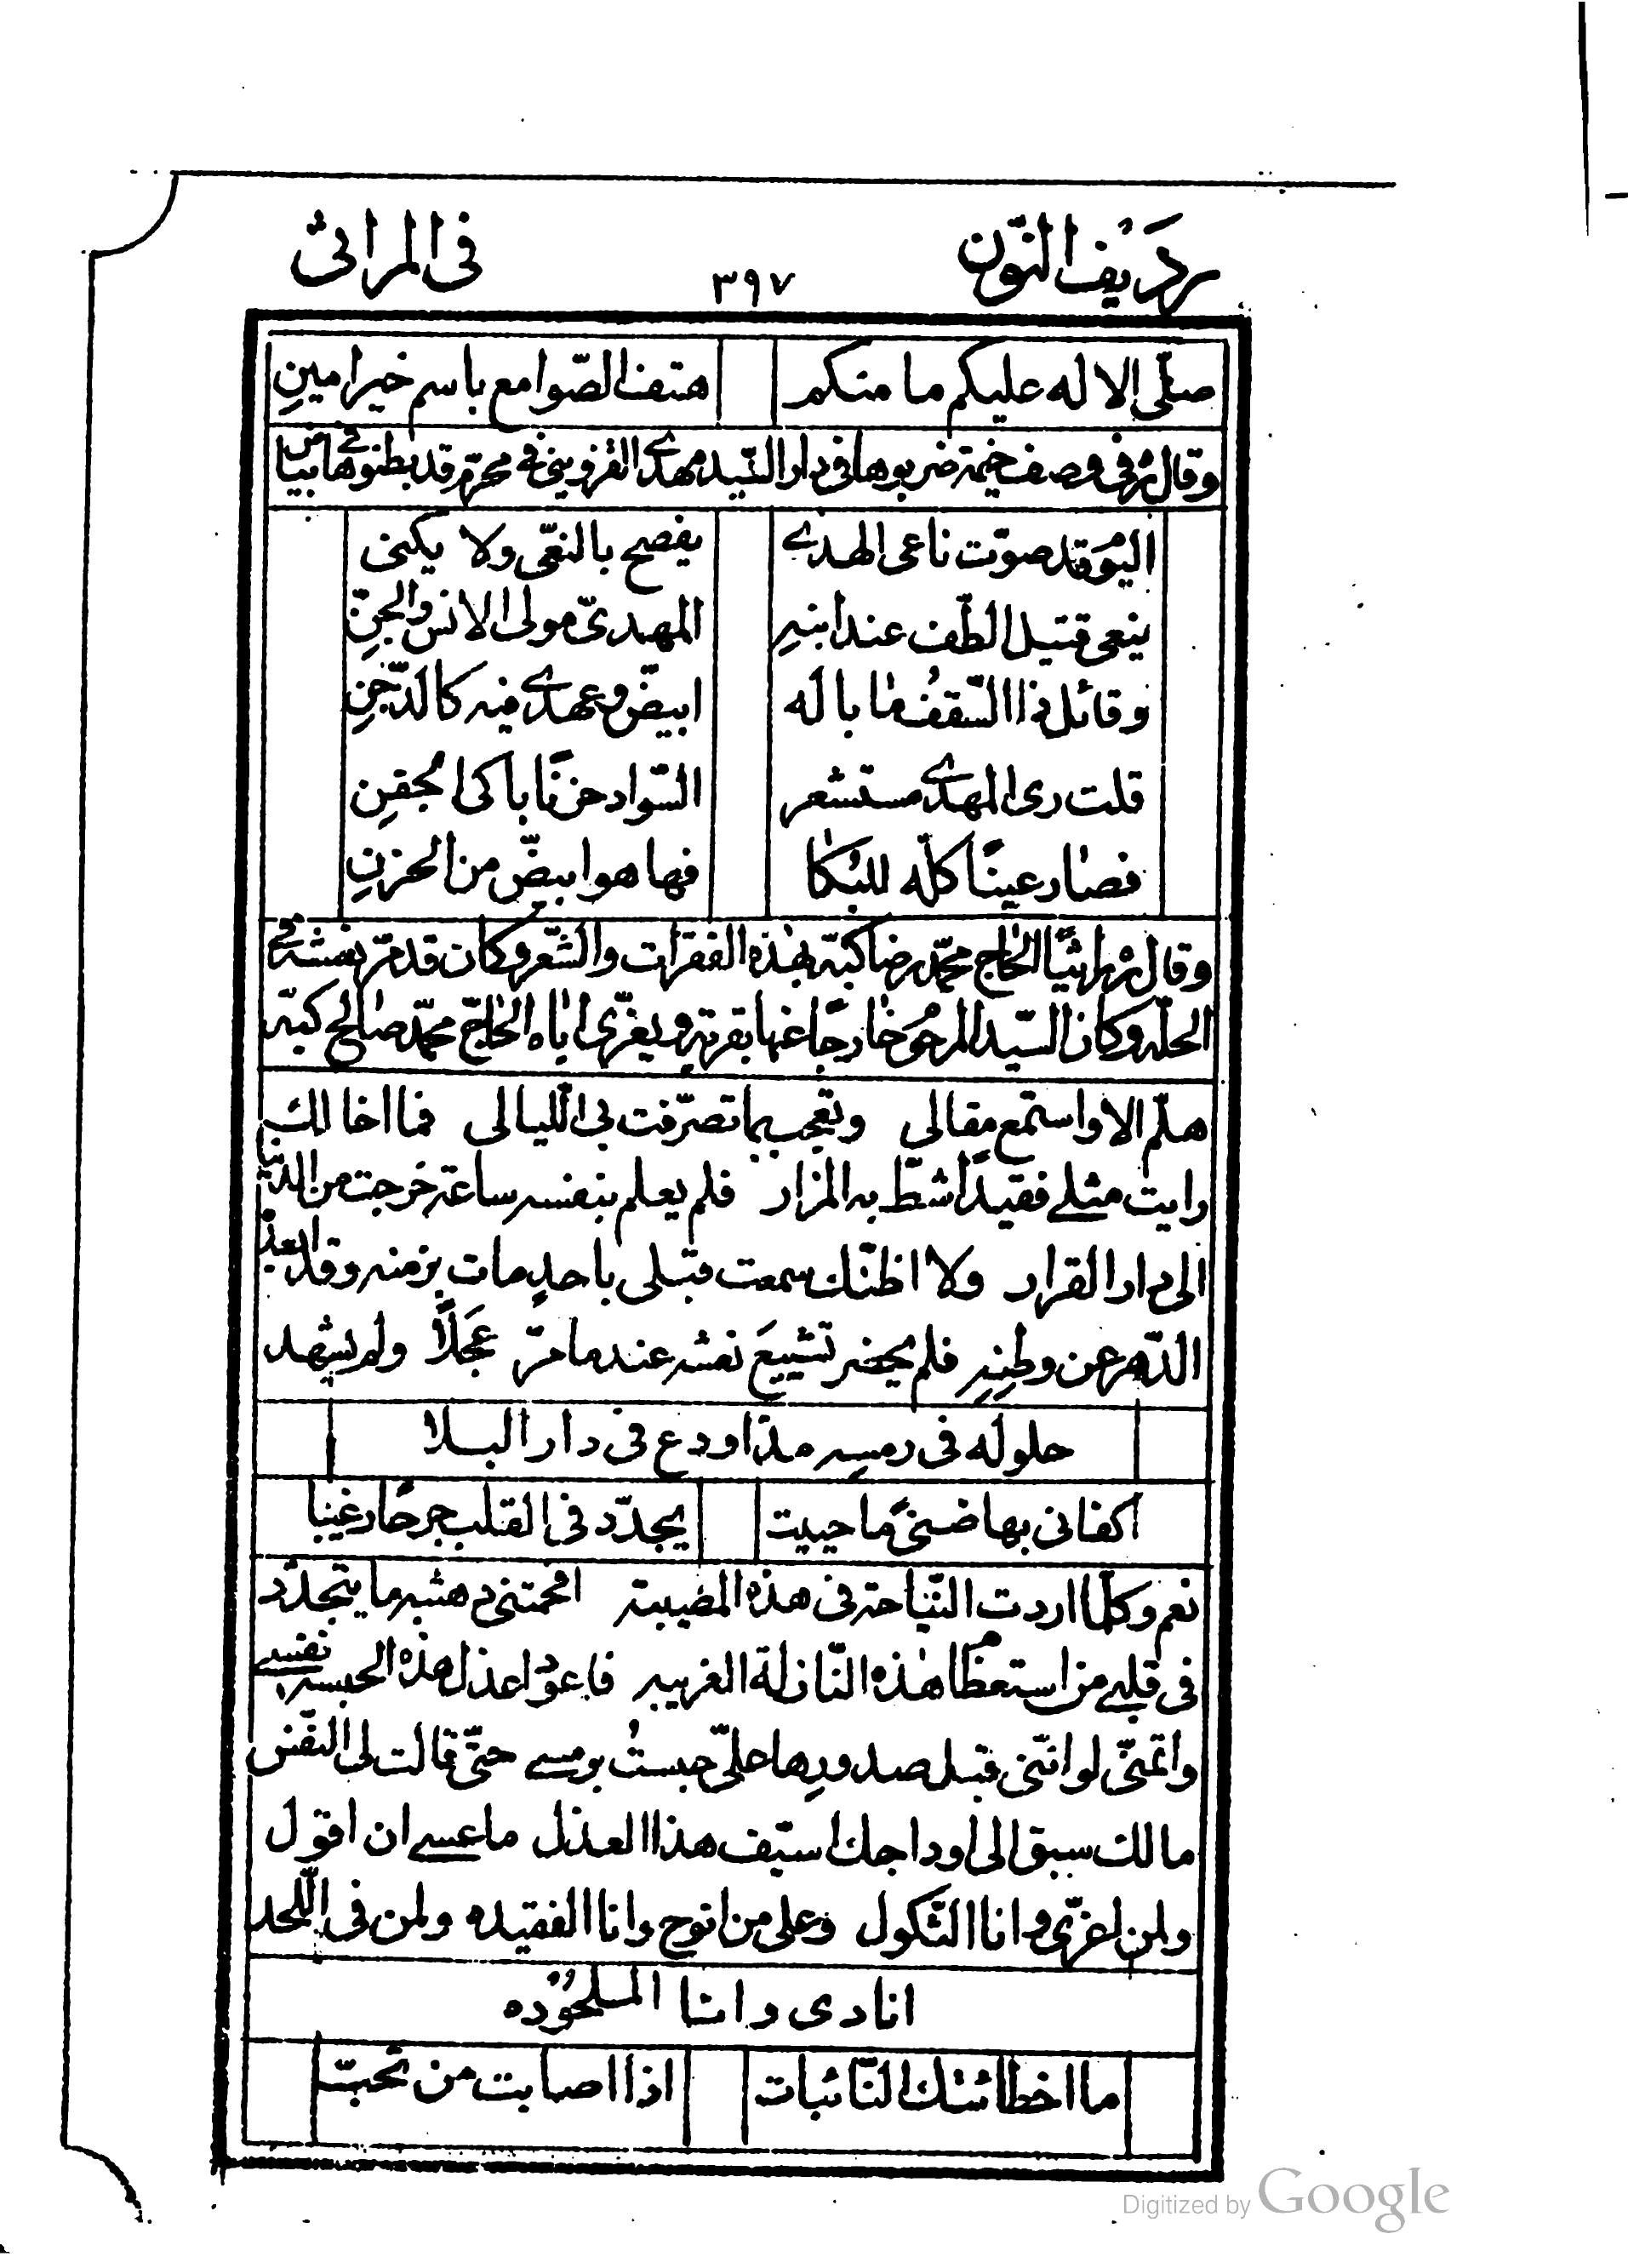 رديف النّون ٣٩٧ فى المراثى
صلّى الاله عليكم ما منكم هتفت الصّوامع باسم خير امينِ
وقال ره فى وصف خيمة ضربوها فى دار السّيد مهدى القزوينى فى محرّم وقد بطنوها ببياض
اليوم قد صوّت ناعى الهدى يفصح بالنعّى ولا يكنى
ينعى قتيل الطّف عند ابنهِ المهدىّ مولى الانس والجنِّ
وقائل ذا السّقفُ ما باله ابيضّ وعهدى فيه كالدّجنِ
قلت رى المهدى مستشعر السّواد حزنًا باكى الجفنِ
فصار عينًا كلّه للبُكا فها هو ابيضّ من الحزنِ
وقال ره راثيًا الحاج محمّد رضا كبّه بهذه الفقرات والشّعر وكان قد مرّ نعشه فى
الحلّه وكان السّيد المرحوم خارجًا عنها بقريته ويعزّى اباه الحاجّ محمّد صالح كبّه
هلمّ الا واستمع مقالى وتعجب بما تصرّفت بى اللّيالى فما اخالك
رايت مثلى فقيدًا شطّ به المزار فلم يعلم بنفسه ساعة خرجت من الدّنيا
الى دار القرار ولا اظنّك سمعت قبلى باحدٍ مات بزمنه وقد ابعد
الدّهر عن وطنِهِ فلم يحضر تشييعَ نعشه عندما مرّ عَجلًا ولم يشهد
حلوله فى رمسِه مذ اودع فى دار البلا
اكفانى بها ضنىً ما حييت يجدّد فى القلب جرحًا رغيبا
نعم وكلّما اردت النّياحة فى هذه المصيبة افحمتنى دهشة ما يتجدّد
فى قلبى من استعظام هذه النّازلة الغريبه فاعود اعذل هذه الحبيسه نفسى
واتمنّى لو انّنى قبل صدورِها علىّ حبستُ برمسى حتّى قالت لى النّفس
مالك سبق الى اوداجك سيف هذا العذل ما عسى ان اقول
ولمن اعزّى وانا الثّكول وعلى من انوح وانا الفقيده ولمن فى اللّحد
انادى وانا الملحوده
ما اخطائتك النّائبات اذا اصابت من تحبّ
Digitized by Google